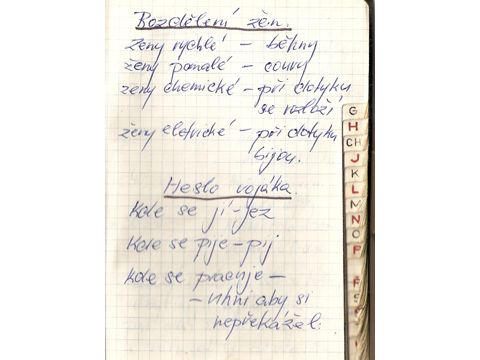 Rozdělení žen.
ženy rychlé – běhny
ženy pomalé – couvy
ženy chemické – při dotyku
se rozloží
ženy eletrické – při dotyku
bijou.
Heslo vojáka.
Kde se jí – jez
Kde se pije – pij
Kde se pracuje –
– uhni aby si
nepřekážel.
G
H
CH
J
K
L
M
N
O
P
R
Ř
S